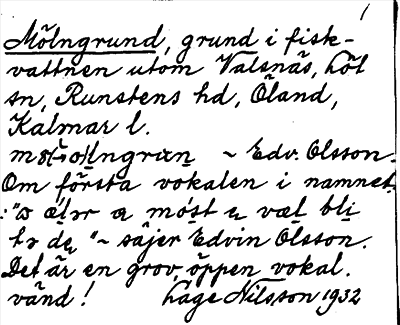 Mölngrund, grund i fisk-
vattnen utom Valsnäs, Löt
sn, Runstens hd, Öland,
Kalmar l.
~ Edv. Olsson.
Om första vokalen i namnet
bli
~ säjer Edvin Olsson.
Det är en grov, öppen vokal.
vänd! Lage Nilsson 1932